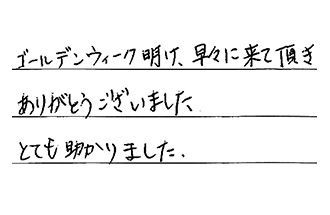 ゴールデンウィーク明け、早々に来て頂き
ありがとうございました
とても助かりました.